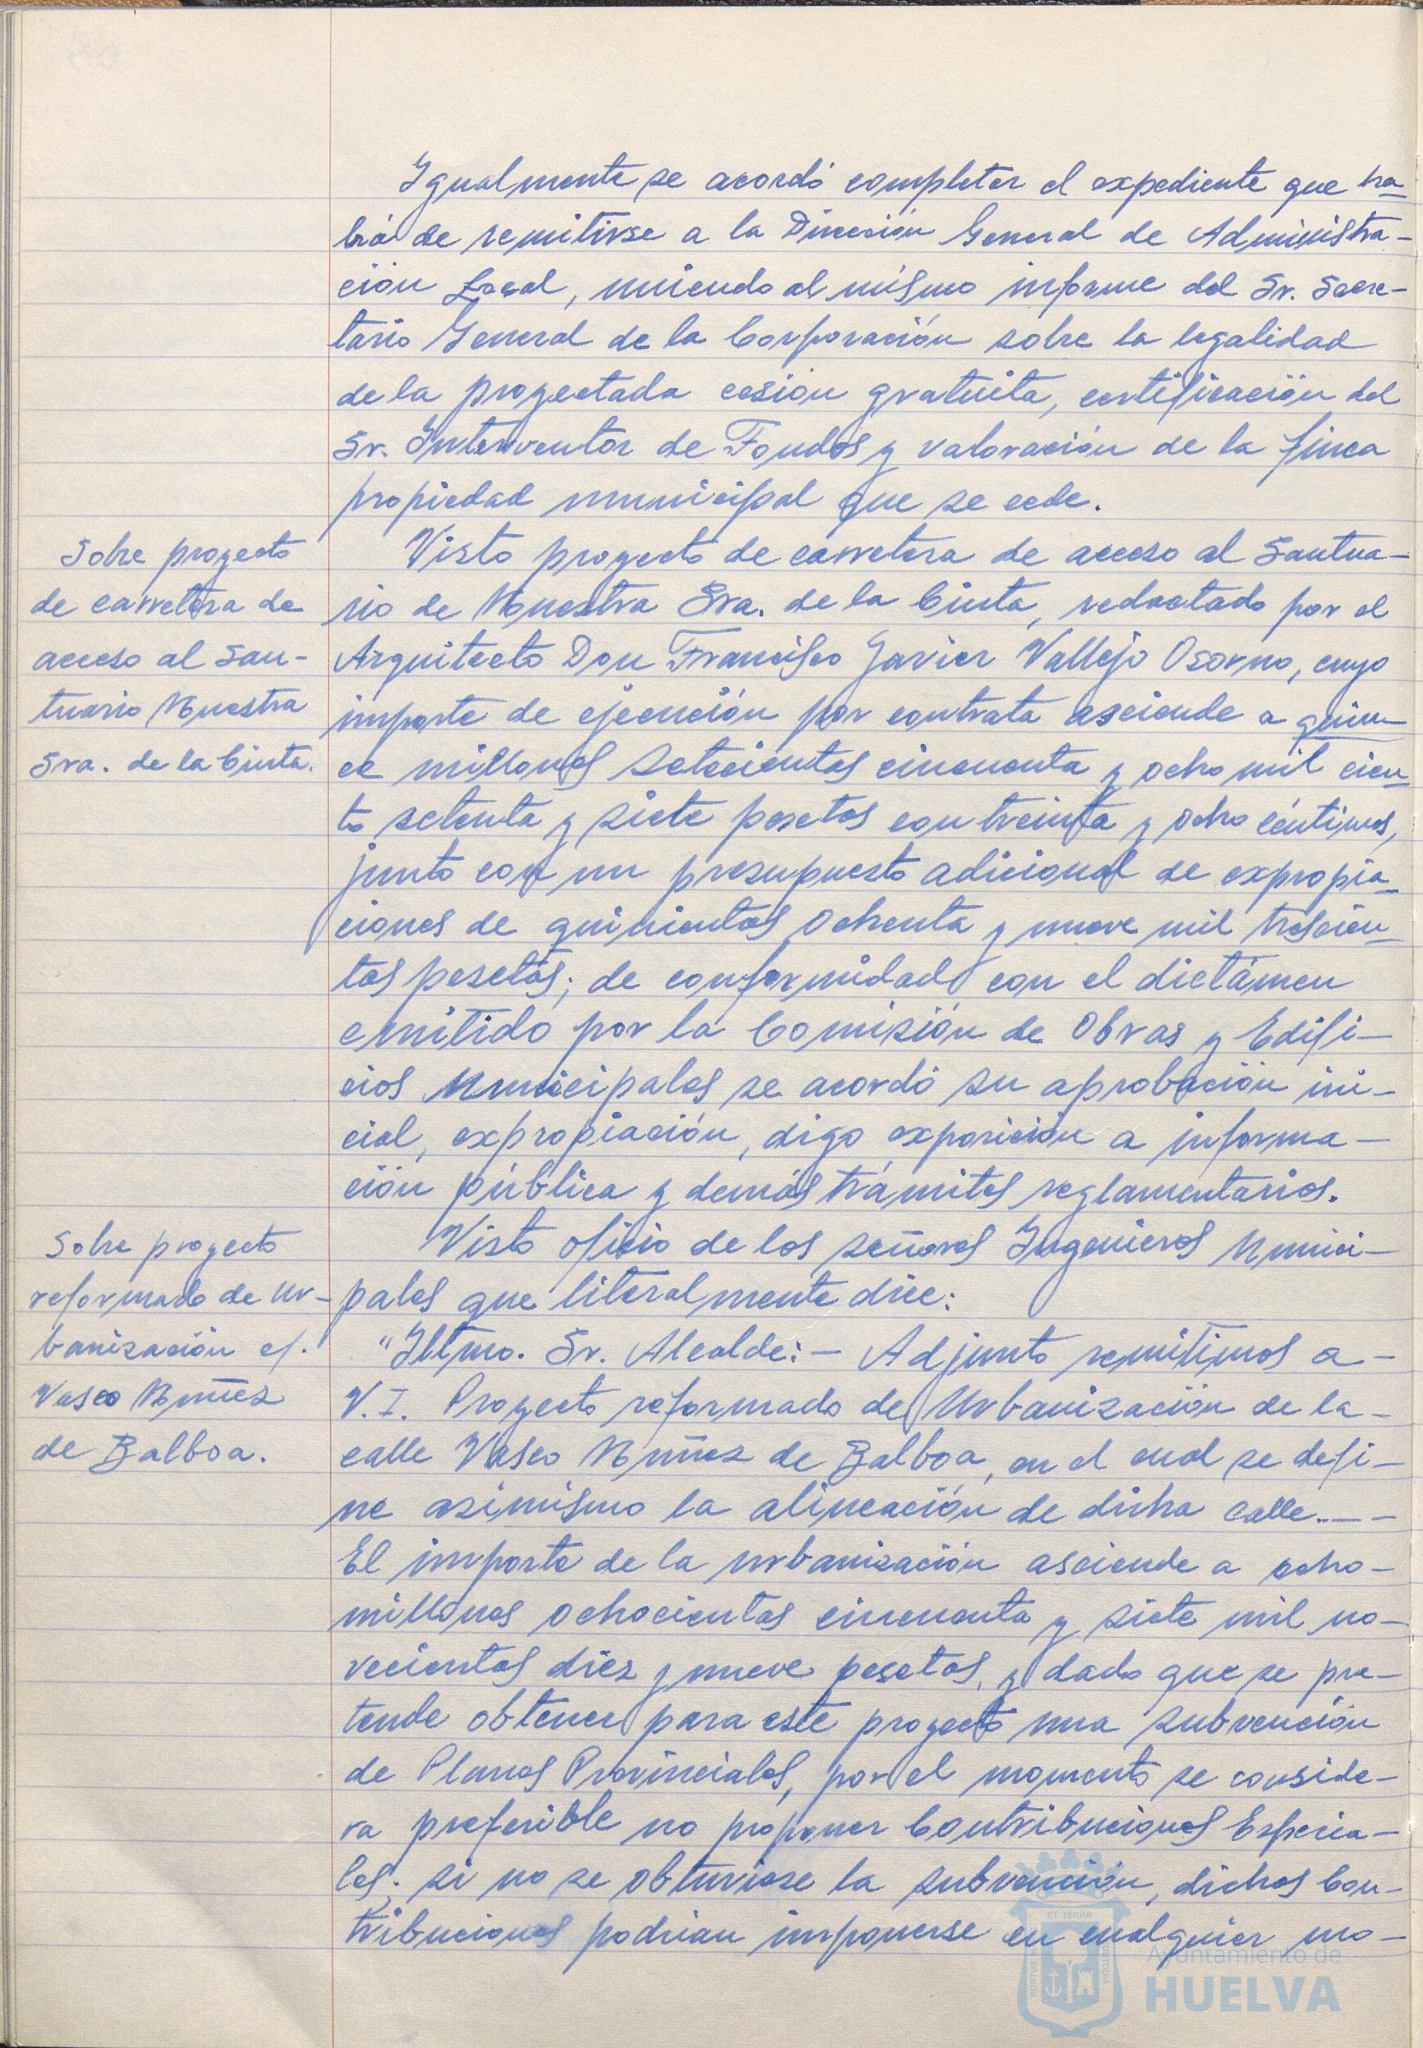 Igualmente se acordó completar el expediente que ha-
brá de remitirse a la Dirección General de Administra-
ción Local, uniendo al mismo informe del Sr. Secre-
tario General de la Corporación sobre la legalidad
de la proyectada cesión gratuita, certificación del
Sr. Interventor de Fondos y valoración de la finca
propiedad municipal que se cede.
Sobre proyecto
de carretera de
acceso al San-
tuario Nuestra
Sra. de la Cinta.
Visto proyecto de carretera de acceso al Santua-
rio de Nuestra Sra. de la Cinta, redactado por el
Arquitecto Don Francisco Javier Vallejo Osorno, cuyo
importe de ejecución por contrata asciende a quin-
ce millones setecientas cincuenta y ocho mil cien-
to setenta y siete pesetas con treinta y ocho céntimos,
junto con un presupuesto adicional de expropia-
ciones de quinientas ochenta y nueve mil trescien-
tas pesetas; de conformidad con el dictámen
emitido por la Comisión de Obras y Edifi-
cios Municipales se acordó su aprobación ini-
cial, expropiación, digo exposición a informa-
ción pública y demás trámites reglamentarios.
Sobre proyecto
reformado de Ur-
banización c/.
Vasco Nuñez
de Balboa.
Visto oficio de los señores Ingenieros Munici-
pales que literalmente dice:
"Iltmo. Sr. Alcalde:- Adjunto remitimos a-
V.I. Proyecto reformado de Urbanización de la-
calle Vasco Nuñez de Balboa, en el cual se defi-
ne asimismo la alineación de dicha calle.--
El importe de la urbanización asciende a ocho-
millones ochocientas cincuenta y siete mil no-
vecientas diez y nueve pesetas, y dado que se pre-
tende obtener para este proyecto una subvención
de Planes Provinciales, por el momento se conside-
ra preferible no proponer Contribuciones Especia-
les; si no se obtuviese la subvención, dichas Con-
tribuciones podrían imponerse en cualquier mo-
ET TERRAE
PORTUS MARIS
CUSTODIA
Ayuntamiento de
HUELVA